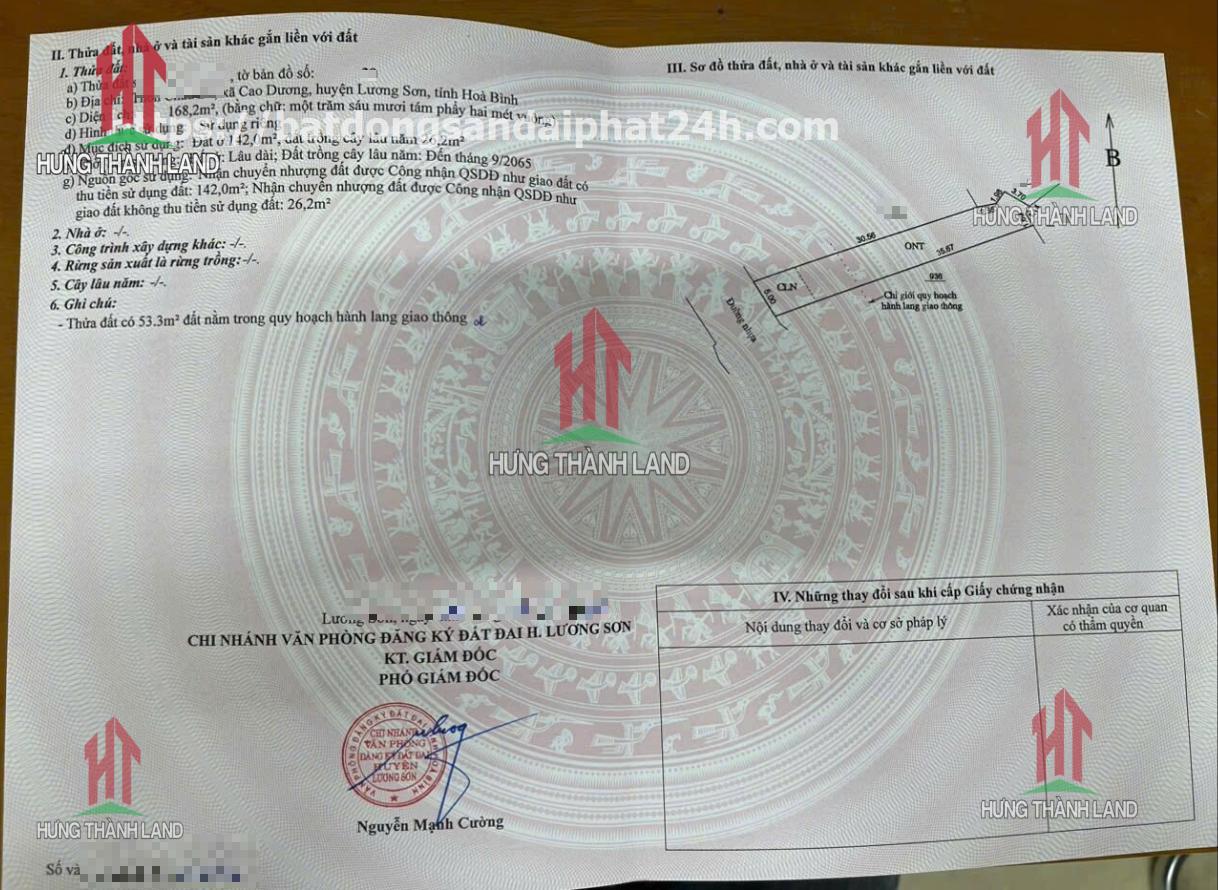 II. Thửa đất, nhà ở và tài sản khác gắn liền với đất
1. Thửa đất:
a) Thửa đất , tờ bản đồ số:
b) Địa chỉ: xã Cao Dương, huyện Lương Sơn, tỉnh Hoà Bình
c) Diện 168,2m², (bằng chữ: một trăm sáu mươi tám phẩy hai mét vuông)
d) Hình sử dụng Sử dụng riêng
đ) Mục đích sử dụng: Đất ở 142,0m², đất trồng cây lâu năm 26,2m²
Lâu dài; Đất trồng cây lâu năm: Đến tháng 9/2065
g) Nguồn gốc sử dụng: Nhận chuyển nhượng đất được Công nhận QSDĐ như giao đất có
thu tiền sử dụng đất: 142,0m²; Nhận chuyển nhượng đất được Công nhận QSDĐ như
giao đất không thu tiền sử dụng đất: 26,2m²
2. Nhà ở: -/-.
3. Công trình xây dựng khác: -/-.
4. Rừng sản xuất là rừng trồng: -/-.
5. Cây lâu năm: -/-.
6. Ghi chú:
- Thửa đất có 53.3m² đất nằm trong quy hoạch hành lang giao thông
https://batdongsandaiphat24h.com
HƯNG THÀNH LAND
III. Sơ đồ thửa đất, nhà ở và tài sản khác gắn liền với đất
B
HƯNG THÀNH LAND
3.70
1.98
30.56
ONT
35.67
CLN
5.00
936
Chỉ giới quy hoạch
hành lang giao thông
Đường nhựa
HƯNG THÀNH LAND
Lương Sơn, ngày
CHI NHÁNH VĂN PHÒNG ĐĂNG KÝ ĐẤT ĐAI H. LƯƠNG SƠN
KT. GIÁM ĐỐC
PHÓ GIÁM ĐỐC
VĂN PHÒNG ĐĂNG KÝ ĐẤT ĐAI TỈNH HOÀ BÌNH
CHI NHÁNH
VĂN PHÒNG
ĐĂNG KÝ ĐẤT ĐAI
HUYỆN
LƯƠNG SƠN
Nguyễn Mạnh Cường
IV. Những thay đổi sau khi cấp Giấy chứng nhận
Nội dung thay đổi và cơ sở pháp lý
Xác nhận của cơ quan
có thẩm quyền
HƯNG THÀNH LAND
HƯNG THÀNH LAND
Số và